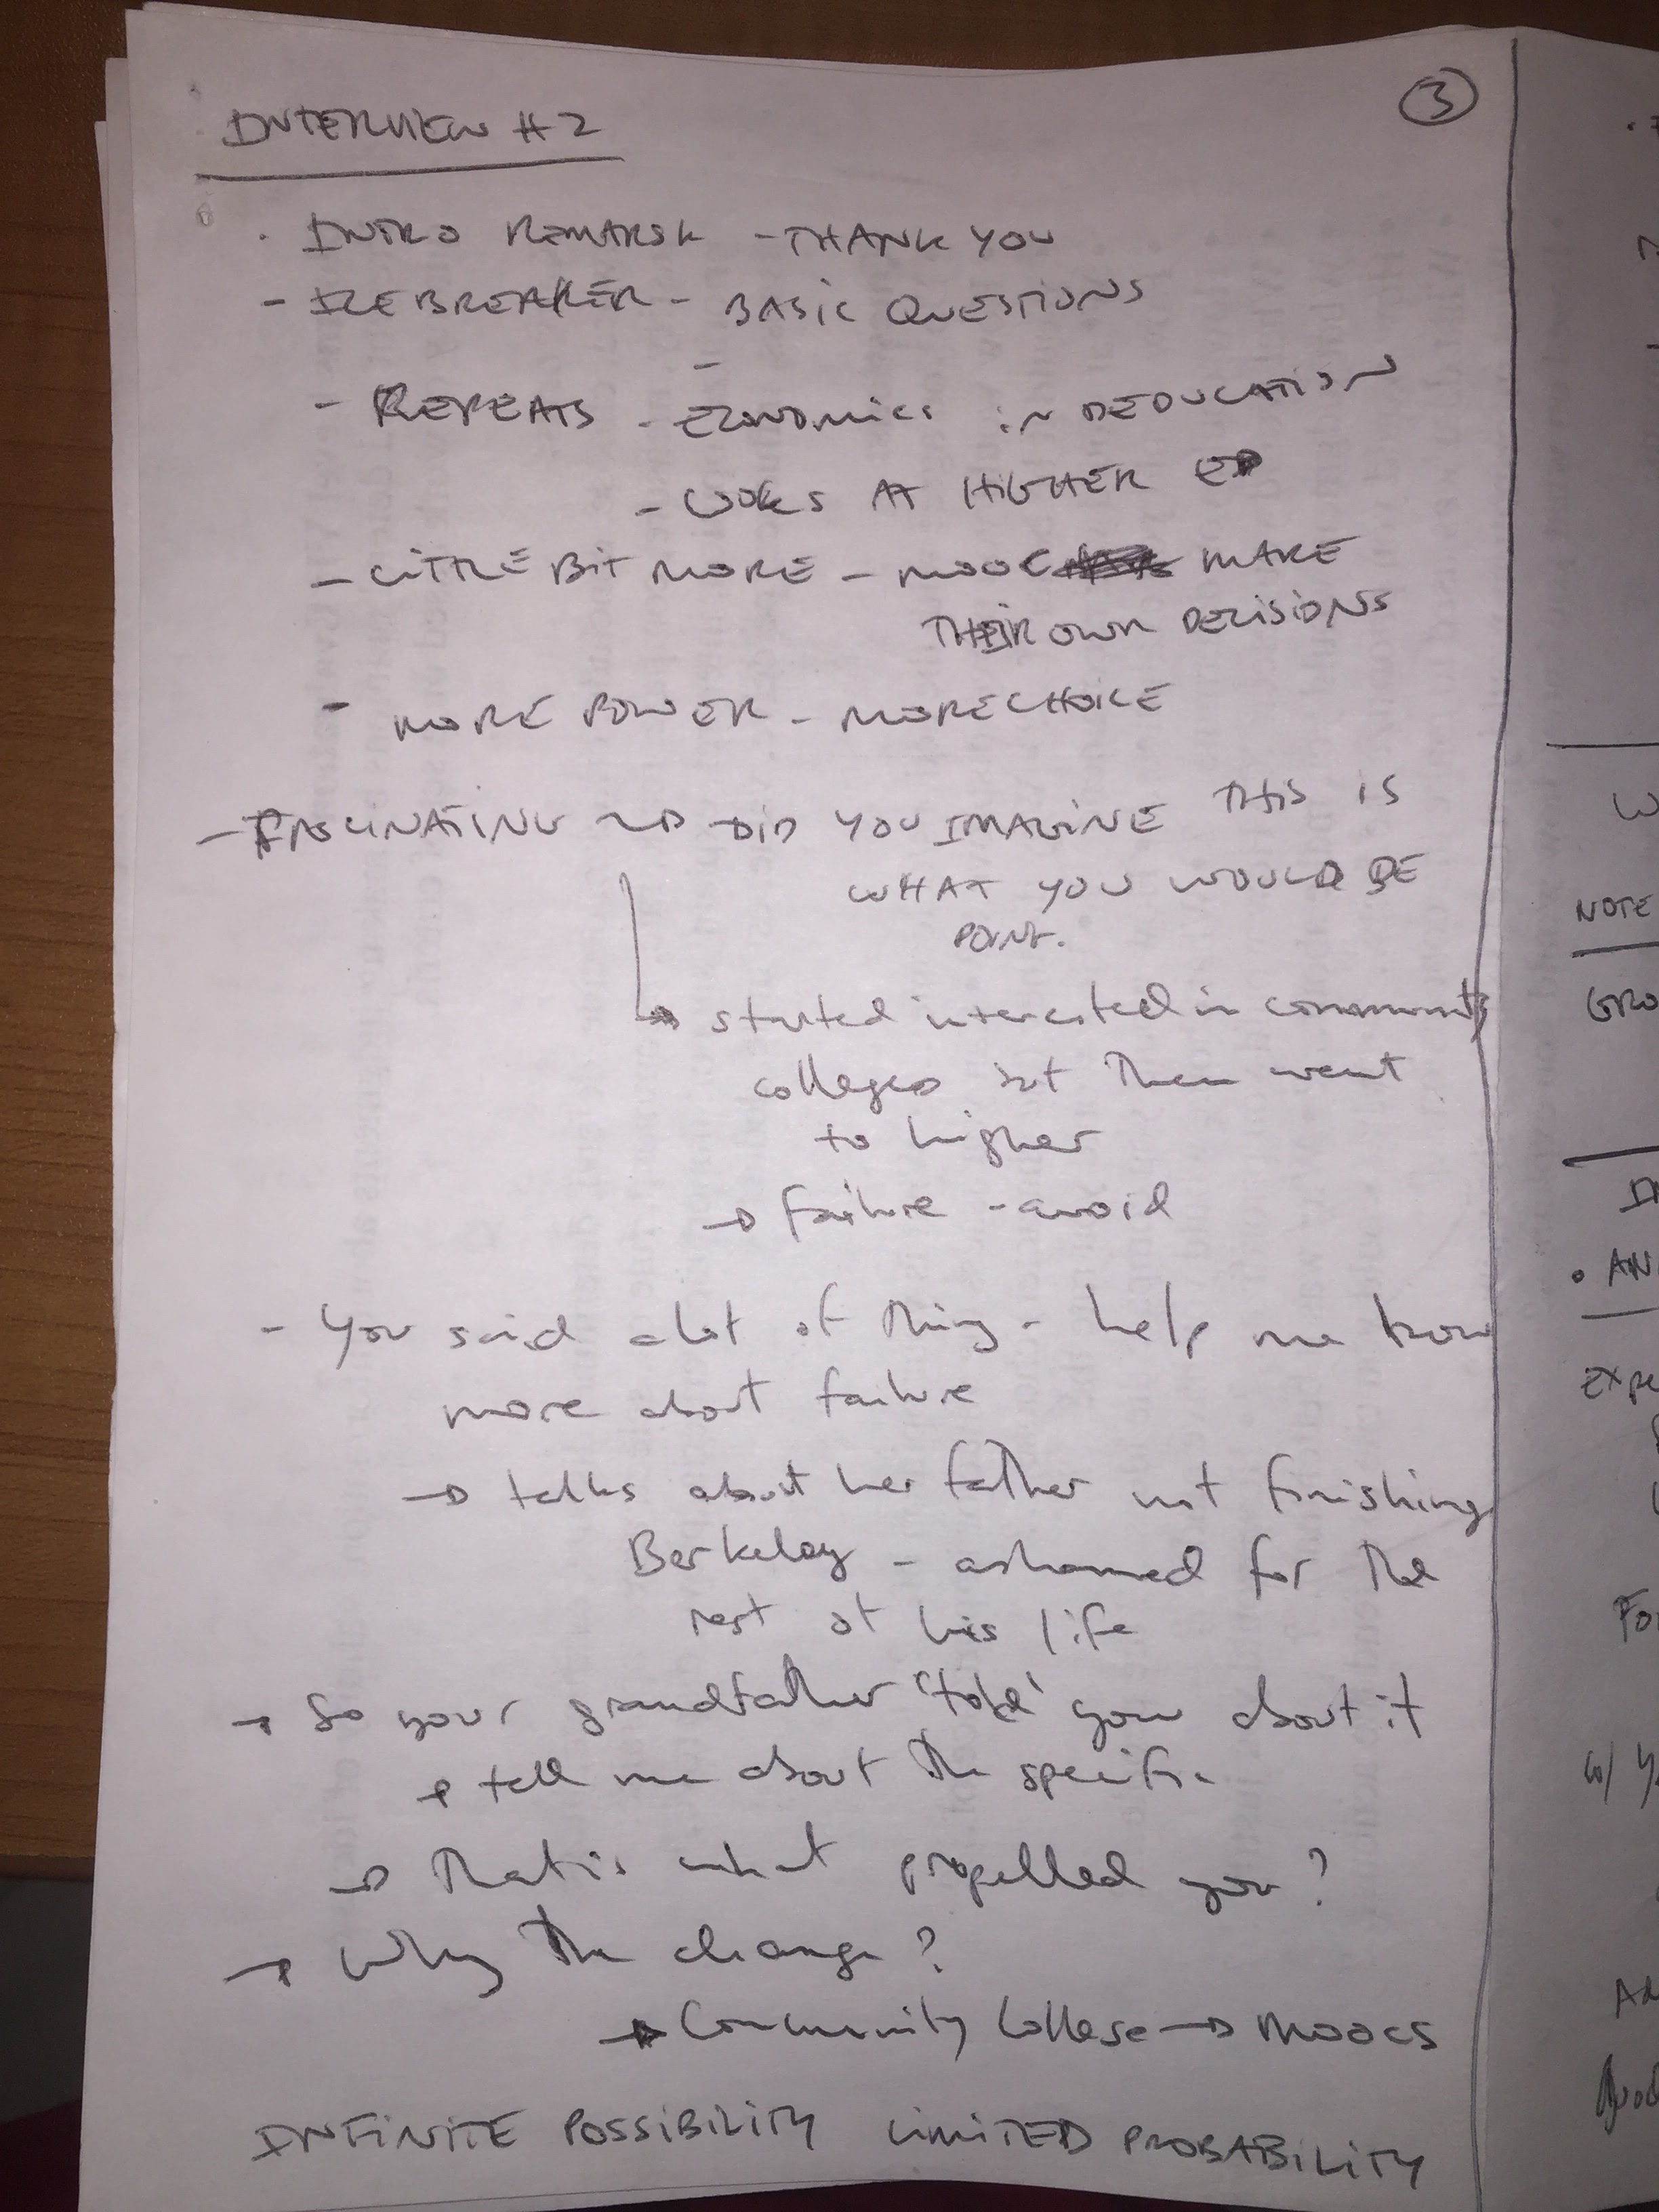 INTERVIEW #2
3
· INTRO REMARSK - THANK YOU
- ICEBREAKER - BASIC QUESTIONS
-
- REPEATS - ECONOMICS in DEDUCATION
- LOOKS AT HIGHER ED
- LITTLE BIT MORE - MOOC MAKE
THEIR OWN DECISIONS
- MORE POWER - MORE CHOICE
- FASCINATING → DID YOU IMAGINE THIS IS
WHAT YOU WOULD BE
POINT.
→ started interested in community
colleges but then went
to higher
→ failure - avoid
- You said a lot of thing - help me know
more about failure
→ talks about her father not finishing
Berkeley - ashamed for the
rest of his life
→ So your grandfather 'told' you about it
→ tell me about the specific
→ That is what propelled you?
→ Why the change?
→ Community College → MOOCS
INFINITE POSSIBILITY LIMITED PROBABILITY
W
NOTE
GRO
· AN
EXPE
FO
w/ Y
Ad